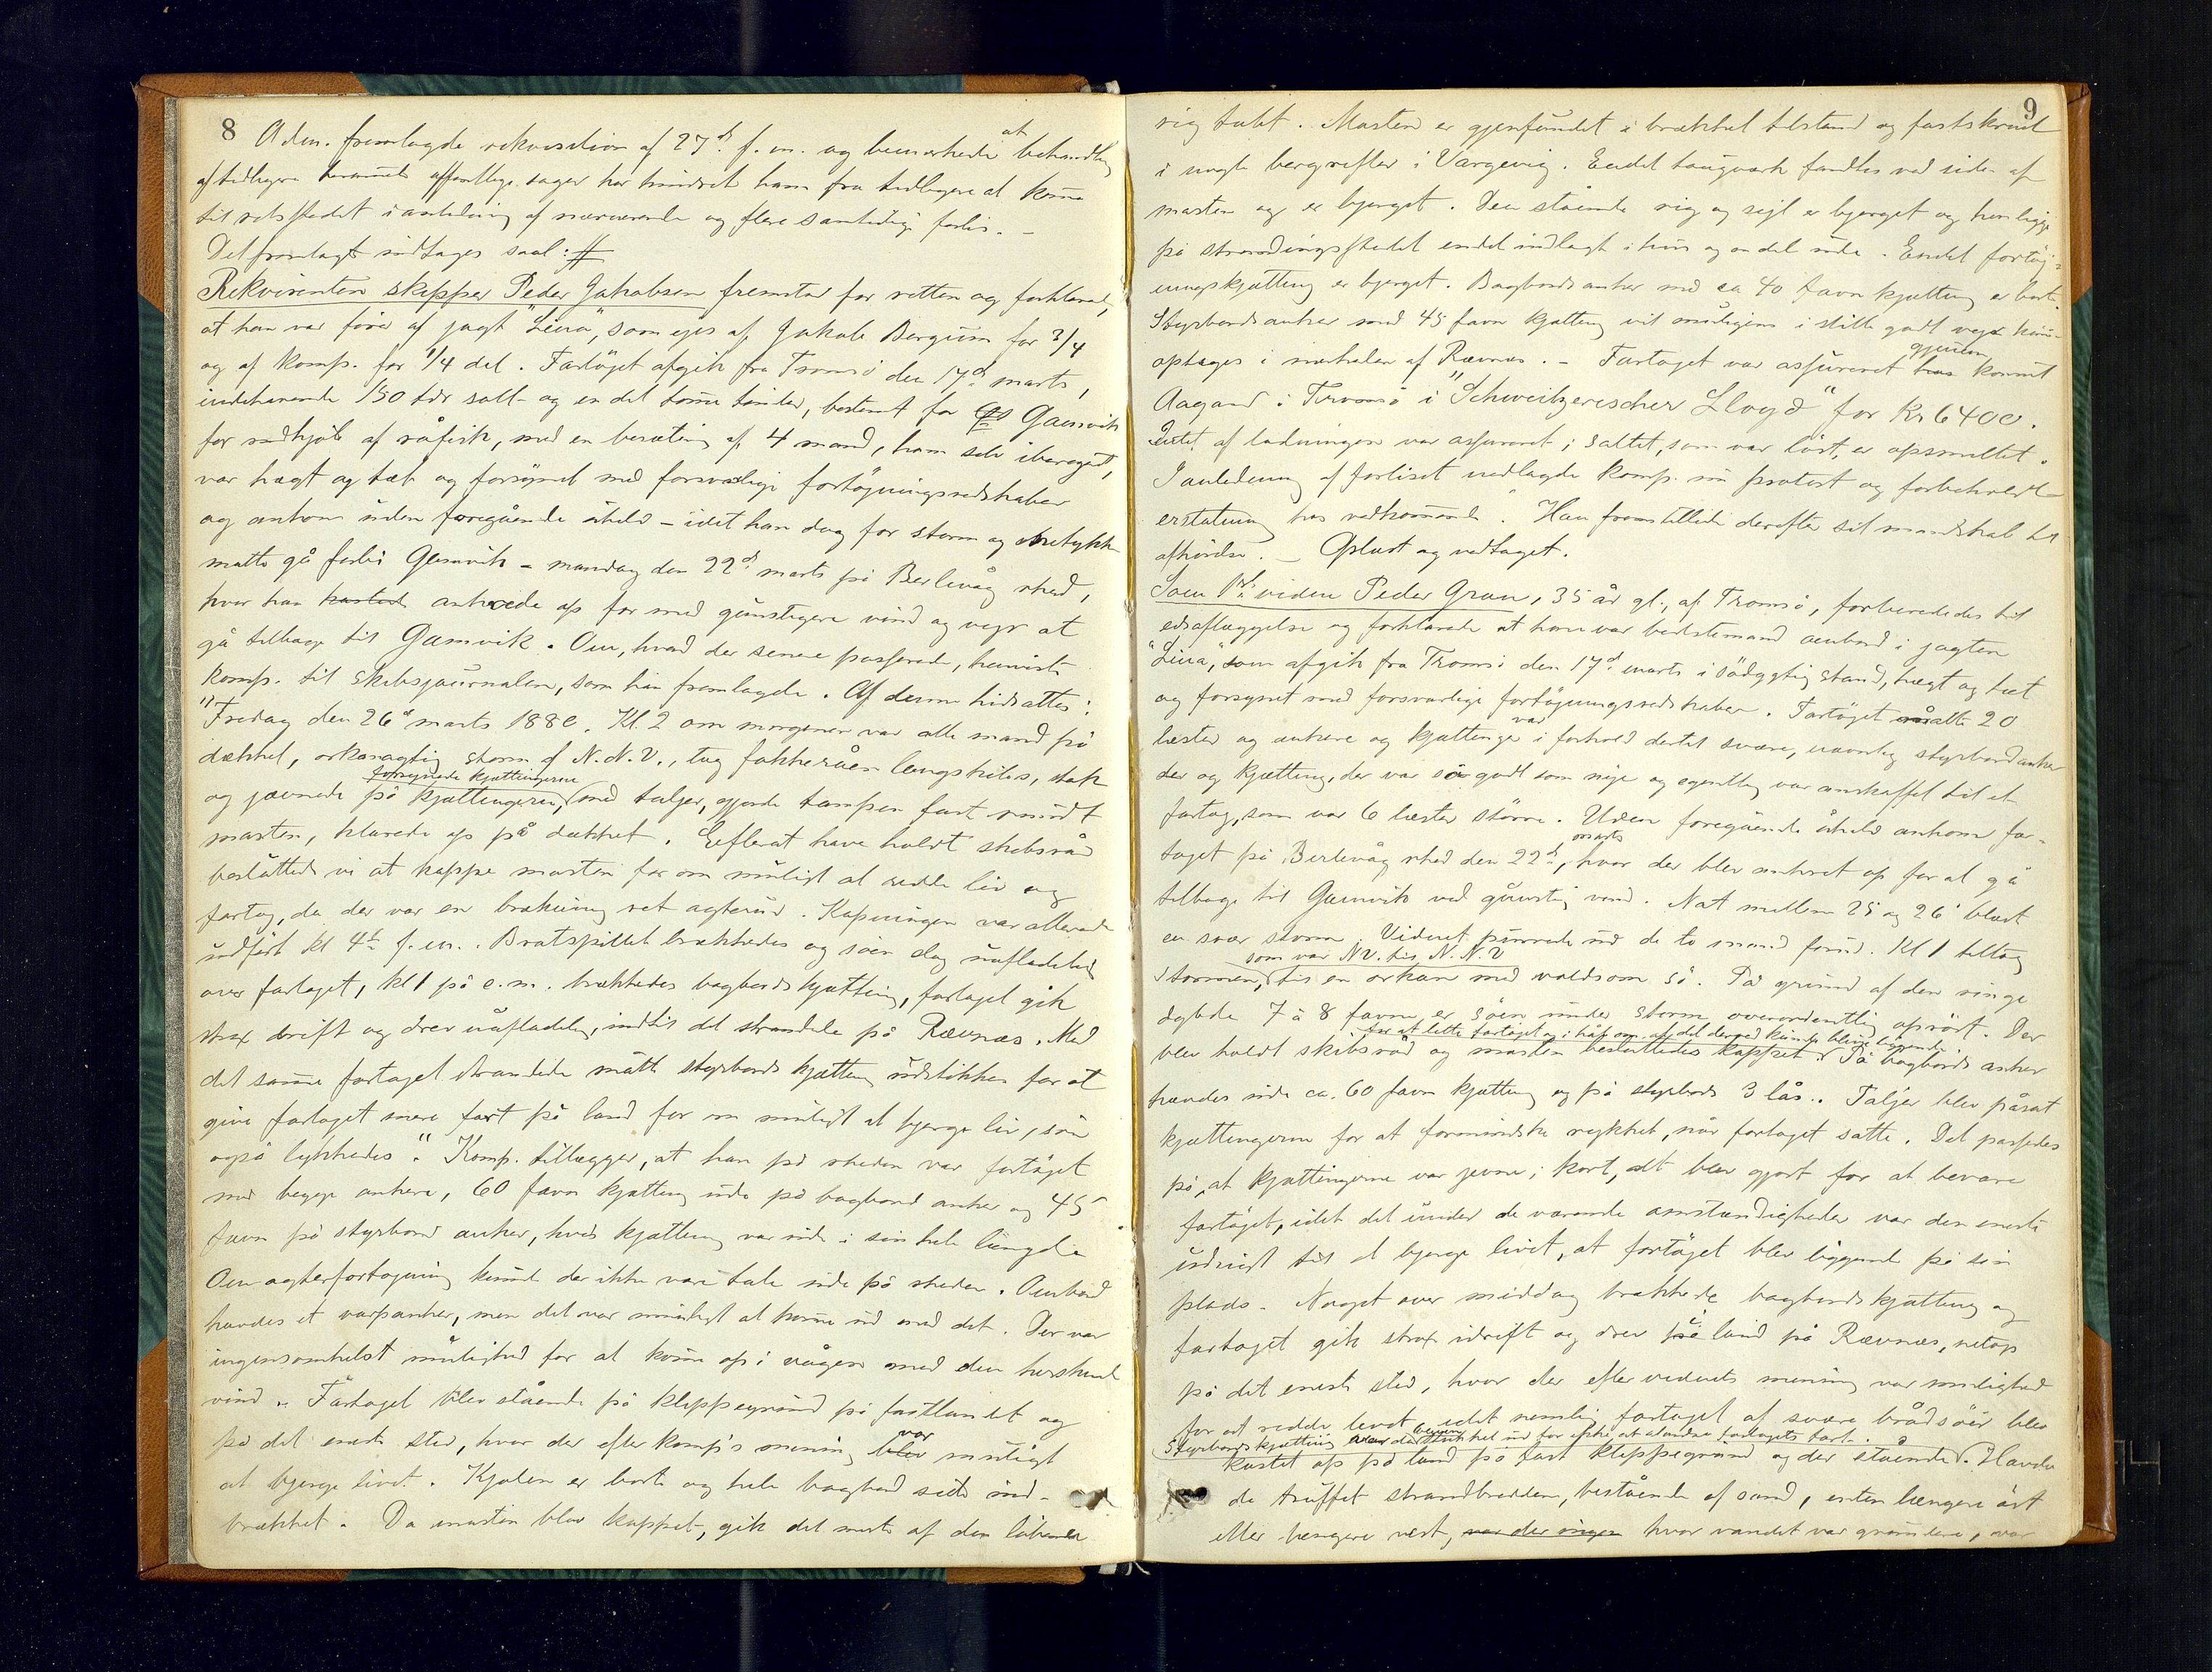 8
Adm. fremlagde rekvisition af 27d. f. m. og bemærkede at behandling
af tidligere berammede offentlige sager har hindret ham fra tidligere at komme
til retsstedet i anledning af nærværende og flere samtidige forlis. –
Det fremlagte indtages saal: #
Rekvirenten skipper Peder Jakobsen fremstod for retten og forklarede,
at han var fører af jagt "Lina", som eies af Jakob Bergum for 3/4
og af komp. for 1/4 del. Fartöjet afgik fra Tromsö den 17d marts,
indehavende 150 tdr salt og en del tomme tönder, bestemt for Gamvik
for indkjöb af råfisk, med en besætning af 4 mand, ham selv iberegnet,
var hægt og tæt og forsynet med forsvarlige fortöjningsredskaber
og ankom uden foregående uheld – idet han dog for storm og snetykke
måtte gå forbi Gamvik – mandag den 22d marts på Berlevåg rhed,
hvor han kastede ankrede op for med gunstigere vind og vejr at
gå tilbage til Gamvik. Om, hvad der senere passerede, henviste
komp. til skibsjournalen, som han fremlagde. Af denne hidsattes:
"Fredag den 26d marts 1880. Kl. 2 om morgenen var alle mand på
dækket, orkanagtig storm af N.N.V., tog fokkeråen langskibs, stak
og jævnede på kjættingerne, forsynede kjættingerne med taljer, gjorde tampen fast rundt
masten, klarede op på dækket. Efterat have holdt skibsråd
besluttede vi at kappe masten for om muligt at redde liv og
fartøj, da der var en brækning ret agterud. Kapningen var allerede
udfört kl 4½ f. m. Bratspillet brækkedes og söen slog uafladelig
over fartøjet, kl 1 på e. m. brækkedes bagbords kjætting, fartøjet gik
strax i drift og drev uafladelig, indtil det strandede på Rævnæs. Med
det samme fartøjet strandede måtte styrbords kjætting udstikkes for at
give fartøjet mere fart på land for om muligt at bjerge liv, som
også lykkedes." Komp. tillægger, at han på rheden var fortöjet
med begge ankere, 60 favn kjætting ude på bagbord anker og 45
favn på styrbord anker, hvis kjætting var ude i sin hele længde
Om agterfortøjning kunde der ikke være tale ude på rheden. Ombord
havdes et varpanker, men det var umuligt at komme ud med det. Der var
ingensomhelst mulighed for at komme op i vågen med den herskende
vind. Fartøjet blev stående på klippegrund på fastlandet og
på det eneste sted, hvor der efter komp's mening blev var muligt
at bjerge livet. Kjølen er borte og hele bagbord side ind-
brækket. Da masten blev kappet, gik det meste af den löbende
9
rig tabt. Masten er gjenfundet i brækket tilstand og fastskruet
i nogle bergrifter i Vargevig. Endel taugværk fandtes ved siden af
masten og er bjerget. Den stående rig og sejl er bjerget og henligge
på strandingsstedet endel indlagt i hus og en del ude. Endel fortøj-
ningskjætting er bjerget. Bagbords anker med ca 40 favn kjætting er borte.
Styrbords anker med 45 favn kjætting vil muligens i stille godt vejr kunne
optages i nærheden af Rævnæs. – Fartøjet var assureret hos gjennem konsul
Aagaard i Tromsö i "Schweitzerischer Lloyd" for Kr 6400.
Intet af ladningen var assureret; saltet, som var löst, er opsmeltet.
I anledning af forliset nedlagde komp. sin protest og forbeholdt
erstatning hos vedkommende. Han fremstillede derefter sit mandskab til
afhörelse. – Oplæst og vedtaget.
Som 1ste vidne Peder Gran, 35 år gl., af Tromsö, forberededes til
edsaflæggelse og forklarede at han var bedstemand ombord i jagten
"Lina", som afgik fra Tromsö den 17d. marts i södygtig stand, hægt og tæt
og forsynet med forsvarlige fortöjningsredskaber. Fartöjet målte 20
læster og ankere og kjættinger var i forhold dertil svære, navnlig styrbord anker
der og kjætting, der var så godt som nye og egentlig var anskaffet til et
fartøj, som var 6 læster större. Uden foregående uheld ankom far-
tøjet på Berlevåg rhed den 22d. marts, hvor der blev ankret op for at gå
tilbage til Gamvik ved gunstig vind. Nat mellem 25 og 26' blæste
en svær storm. Vidnet purrede ud de to mand forud. Kl 1 tiltog
stormen, som var NV. til N.N.V til en orkan med voldsom sö. På grund af den ringe
dybde 7 à 8 favne er söen under storm overordentlig oprört. Der
blev holdt skibsråd og masten besluttedes kappet for at lette fartøjet og i håb om, at det derved kunde blive liggende. På bagbords anker
havdes ude ca. 60 favn kjætting og på styrbords 3 lås. Taljer blev påsat
kjættingerne for at formindske rykket, når fartøjet satte. Det passedes
på, at kjættingerne var jevne; kort, alt blev gjort for at bevare
fartøjet, idet det under de værende omstændigheder var den eneste
udsigt til at bjerge livet, at fartøjet blev liggende på sin
plads. Noget over middag brækkede bagbords kjætting og
fartøjet gik strax i drift og drev på land på Rævnæs, netop
på det eneste sted, hvor der efter vidnets mening var mulighed
for at redde livet, idet nemlig fartøjet af svære brådsöer blev
Styrbords kjætting
kastet op på land på fast klippegrund og der stående. Havde
de truffet strandbredden, bestående af sand, enten længere öst
eller længere vest, var der ingen hvor vandet var grundere, var